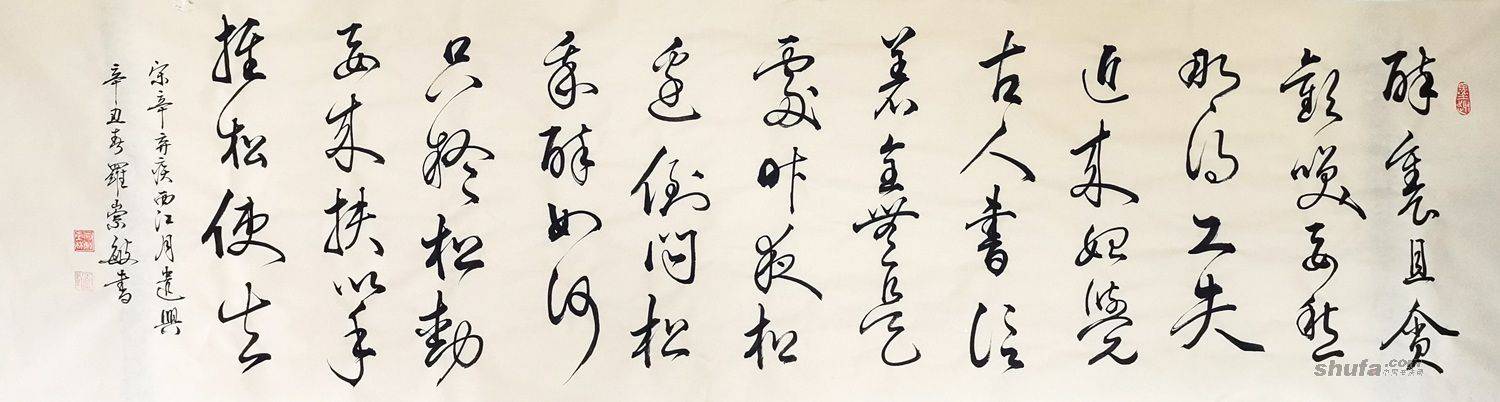 醉裏且貪
歡笑要愁
那得工夫
近來始覺
古人書信
着全無是
處昨夜松
邊倒問松
我醉如何
只疑松動
要來扶以手
推松使去
宋辛弃疾西江月遣興
辛丑春羅崇敏書
shufa.com